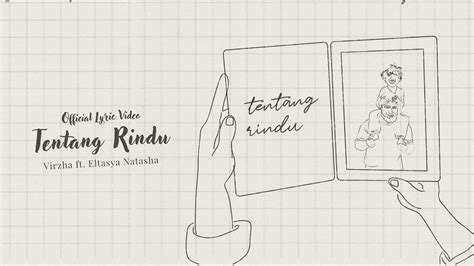 Official Lyric Video
Tentang Rindu
Virzha ft. Eltasya Natasha
tentang
rindu